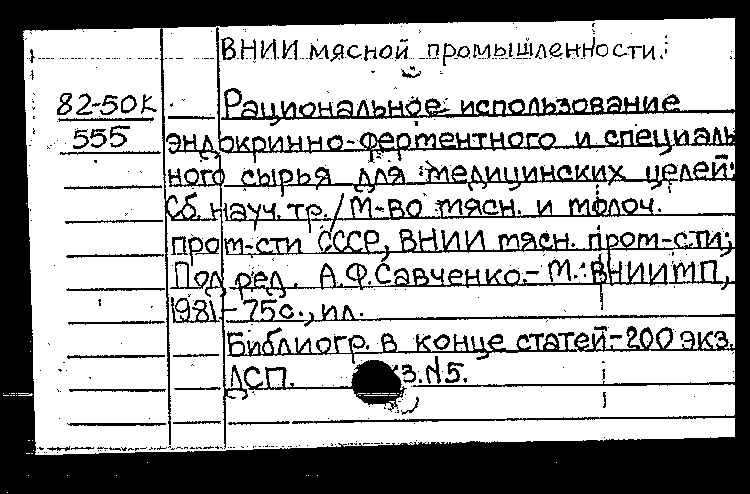 ВНИИ мясной промышленности.
82-50К
555
Рациональное использование
эндокринно-ферментного и специаль
ного сырья для медицинских целей:
Сб. науч. тр./М-во мясн. и молоч.
пром-сти СССР, ВНИИ мясн. пром-сти;
Под ред. А.Ф.Савченко.- М.: ВНИИМП,
1981.- 75с., ил.
Библиогр. в конце статей.- 200 экз.
ДСП. №5.